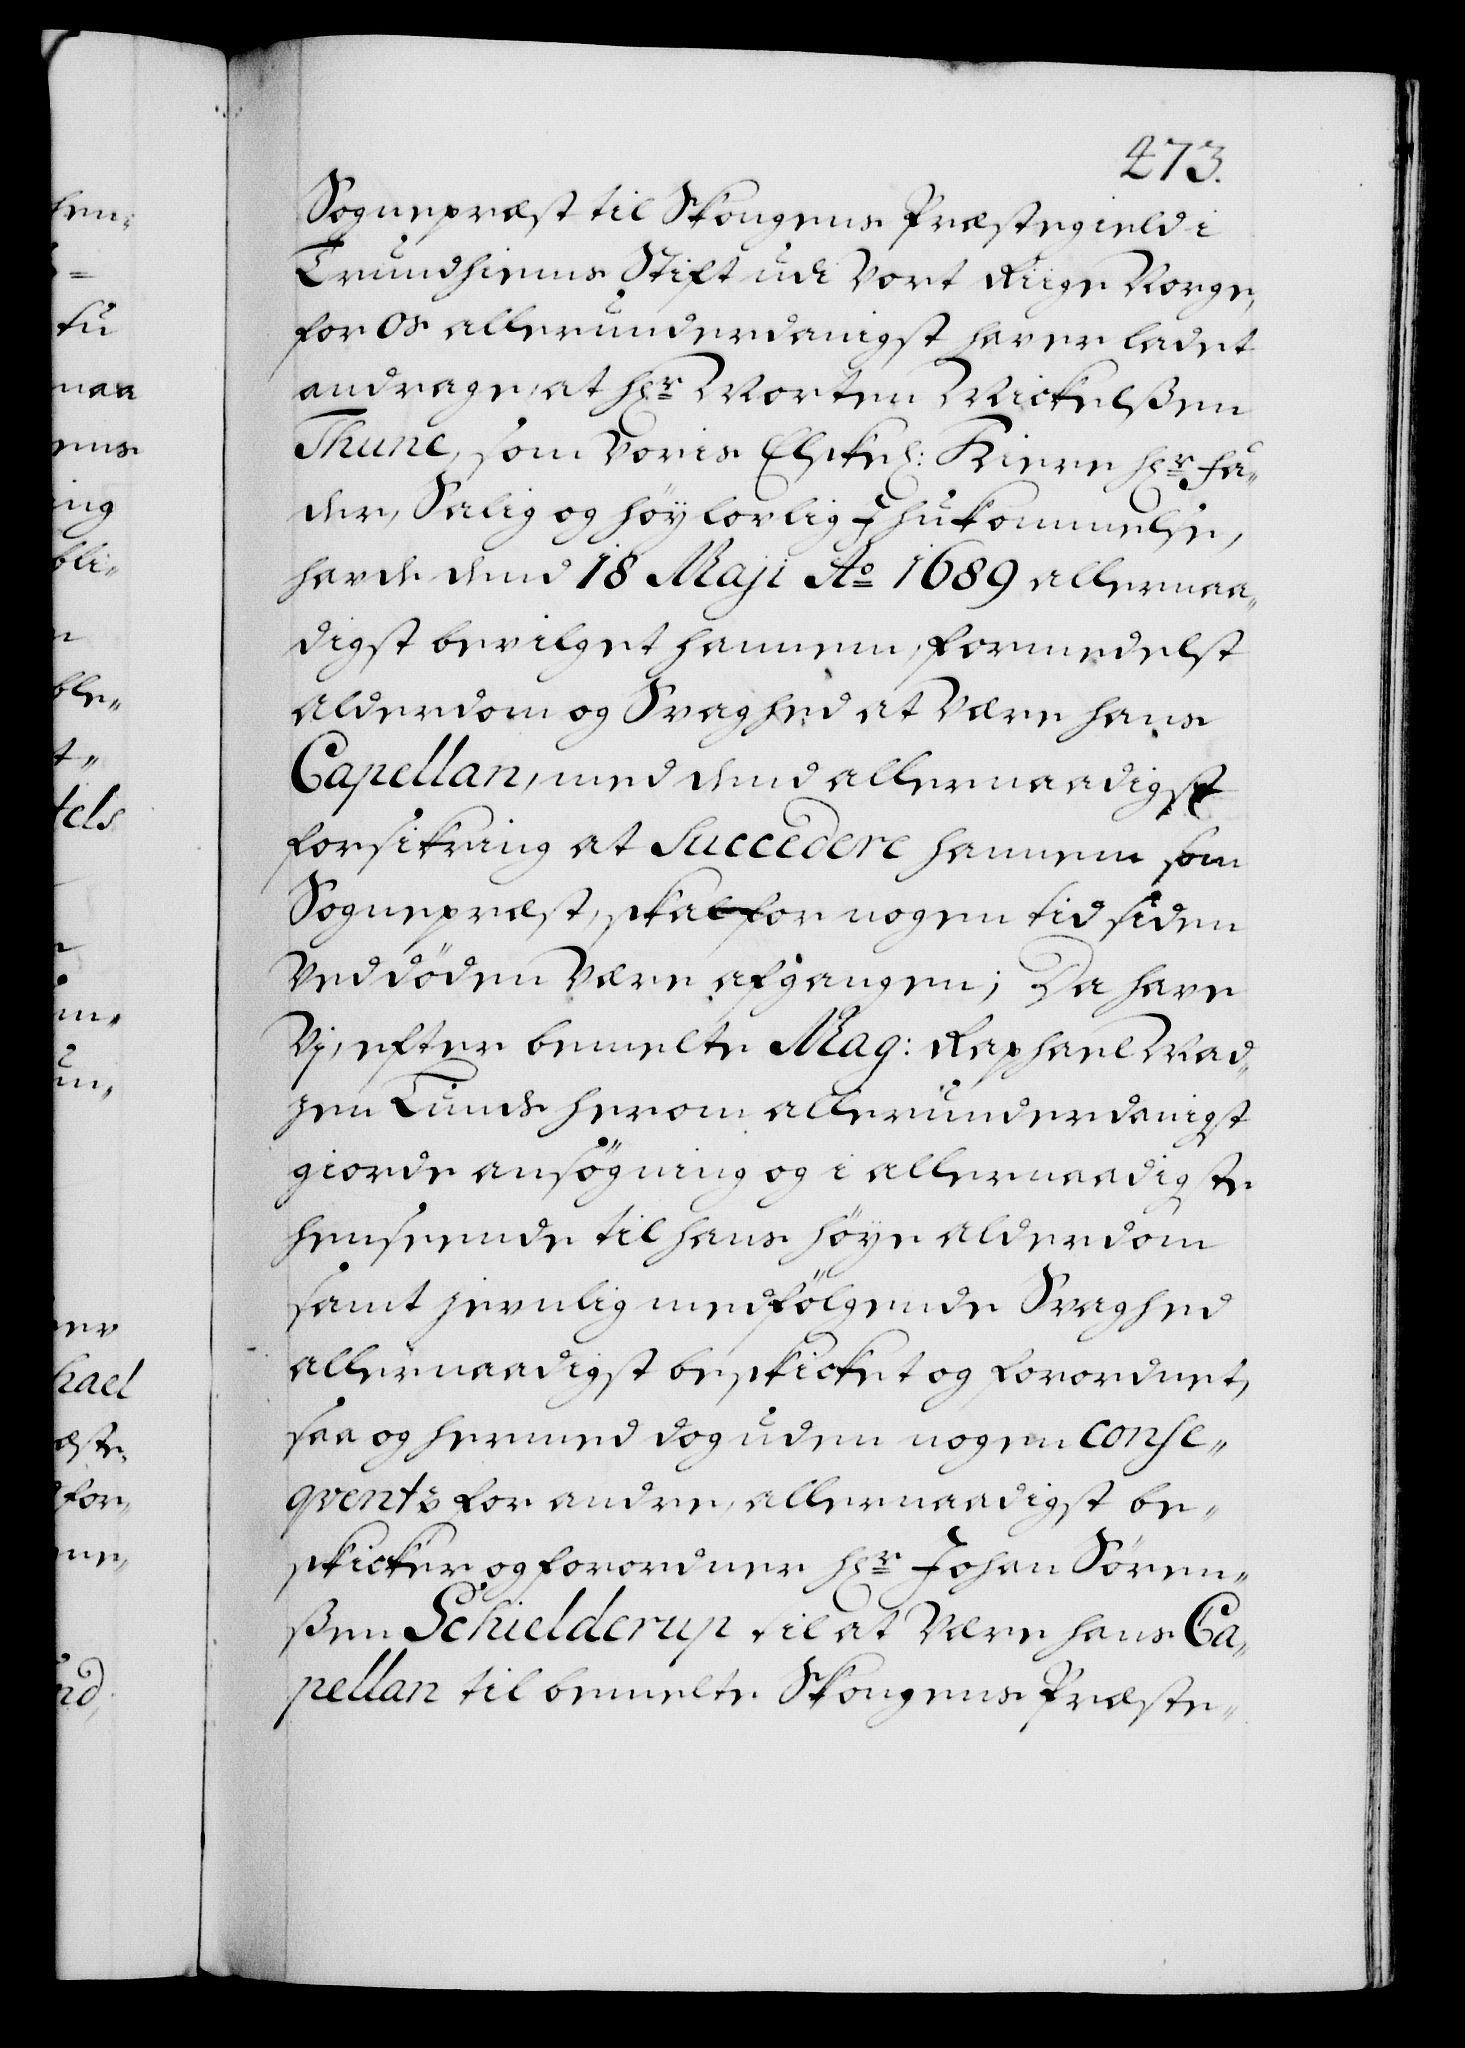 473.
Sognepræst til Skongens Præstegield i
Trundhiems Stift udi Vort Riige Norge,
for Os allerunderdanigst haver ladet
andrage, at Hr Morten Mickelßen
Thune, som Voris Elskel: Kiere Hr Fa„
der, Salig og höylovlig Ihukommelse,
hafde dend 18 Maji Ao 1689 allernaa„
digst bevilget hannem, formedelst
Alderdom og Svaghed at Være hans
Capellan, med dend allernaadigst
forsikring at Succedere hannem som
Sognepræst, skal for nogen tid siden
Ved döden Være afgangen; Da have
Vj, efter bemelte Mag: Raphael Mad„
zen Lunds herom allerunderdanigst
giorde ansögning og i allernaadigste
henseende til hans höye alderdom
samt jevnlig medfölgende Svaghed
allernaadigst beskicket og forordnet,
saa og hermed dog uden nogen conse„
qvents for andre, allernaadigst be„
skicker og forordner Hr Johan Sören„
ßen Schielderup til at Være hans Ca„
pellan til bemelte Skongens Præste„
hen„
tu
maa
ens
ing
bli„
ble„
t„
tels
en„
un„
er
hael
æste
for„
ne„
nd,